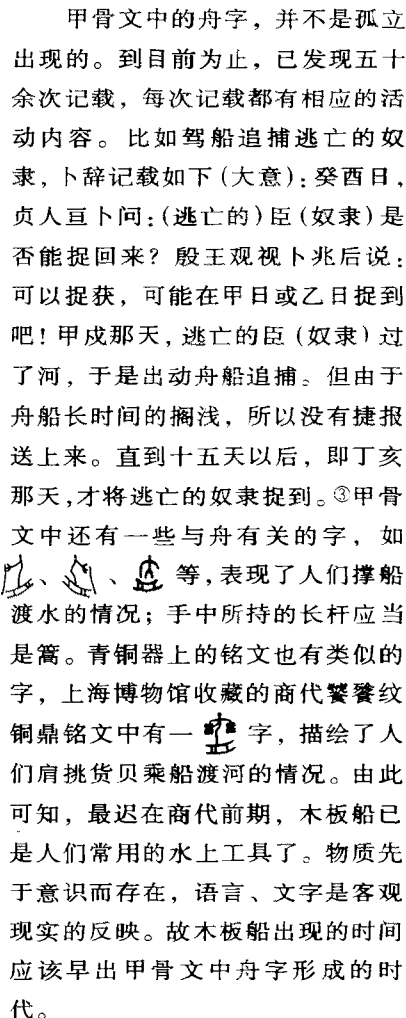 甲骨文中的舟字，并不是孤立
出现的。到目前为止，已发现五十
余次记载，每次记载都有相应的活
动内容。比如驾船追捕逃亡的奴
隶，卜辞记载如下(大意)：癸酉日，
贞人亘卜问：(逃亡的)臣(奴隶)是
否能捉回来？殷王观视卜兆后说：
可以捉获，可能在甲日或乙日捉到
吧！甲戍那天，逃亡的臣(奴隶)过
了河，于是出动舟船追捕。但由于
舟船长时间的搁浅，所以没有捷报
送上来。直到十五天以后，即丁亥
那天，才将逃亡的奴隶捉到。③甲骨
文中还有一些与舟有关的字，如
、、等，表现了人们撑船
渡水的情况；手中所持的长杆应当
是篙。青铜器上的铭文也有类似的
字，上海博物馆收藏的商代饕餮纹
铜鼎铭文中有一字，描绘了人
们肩挑货贝乘船渡河的情况。由此
可知，最迟在商代前期，木板船已
是人们常用的水上工具了。物质先
于意识而存在，语言、文字是客观
现实的反映。故木板船出现的时间
应该早出甲骨文中舟字形成的时
代。